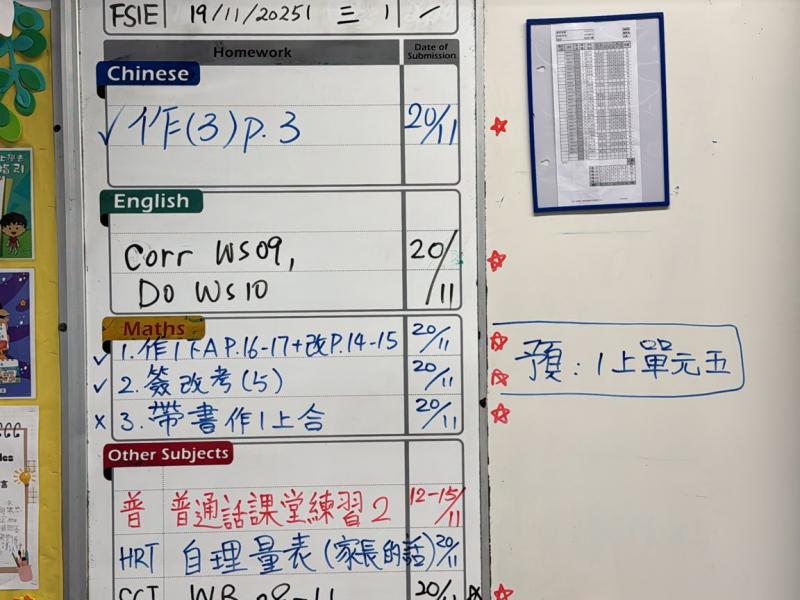 FSIE 19/11/2025 三 1
Homework Date of Submission
Chinese
✓ 作(3)p.3 20/11
English
Corr WS09, 20/11
Do WS10
Maths
✓ 1.作1下A P.16-17+改P.14-15 20/11
預:1上單元五
✓ 2.簽改考(5) 20/11
x 3.帶書作1上合 20/11
Other Subjects
普 普通話課堂練習2 12-15/11
HRT 自理量表(家長的話) 20/11
CCT WB 08-11 20/11